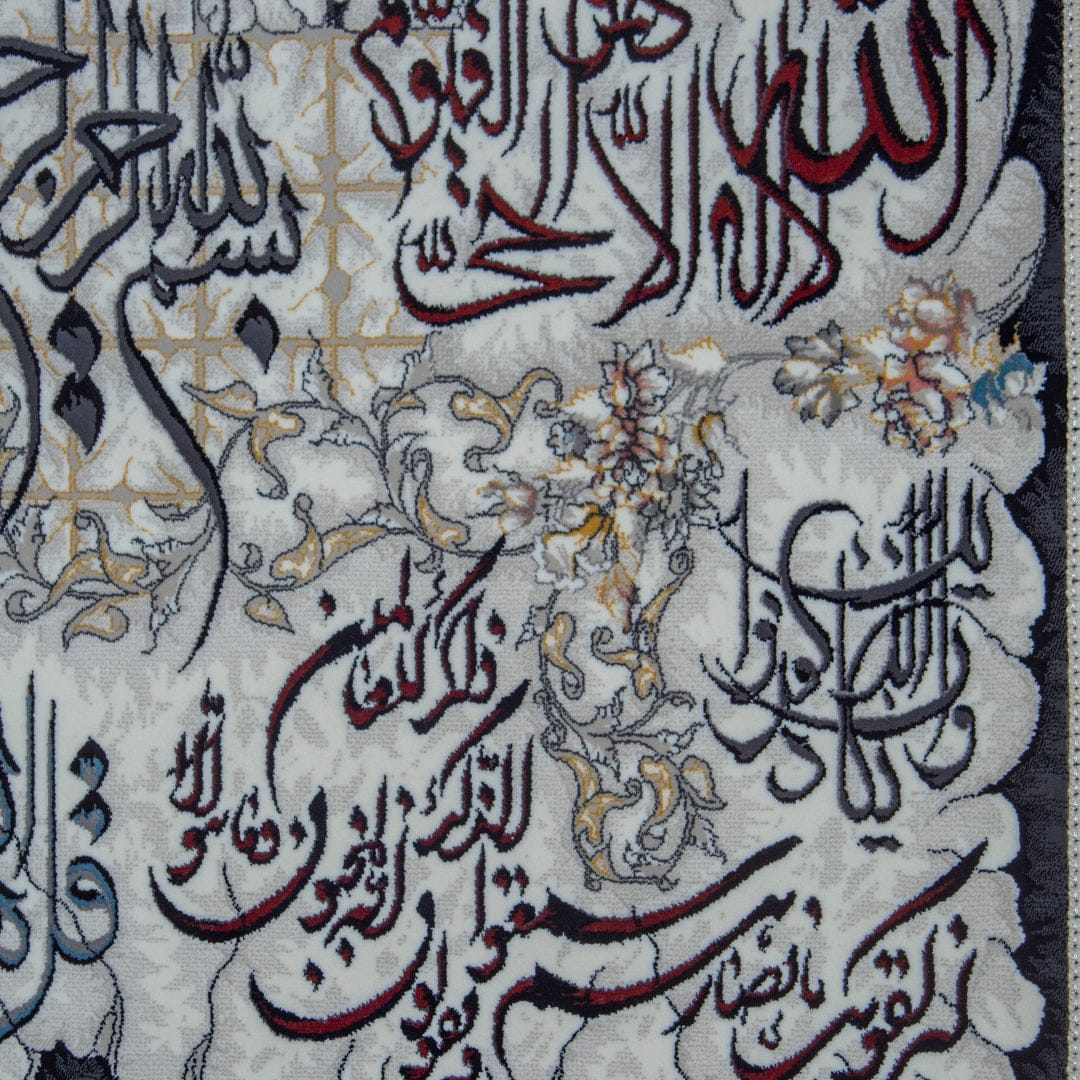 الله لا اله الا
هو الحی القیوم
بسم الله الرحمن الرحیم
وان یکاد الذین
کفروا
لیزلقونک
بابصارهم
لما سمعوا
الذکر
ویقولون
انه لمجنون
وما هو الا
ذکر للعالمین
قل